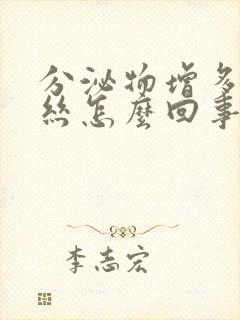 分泌物增多
絲怎麼回事
李志宏